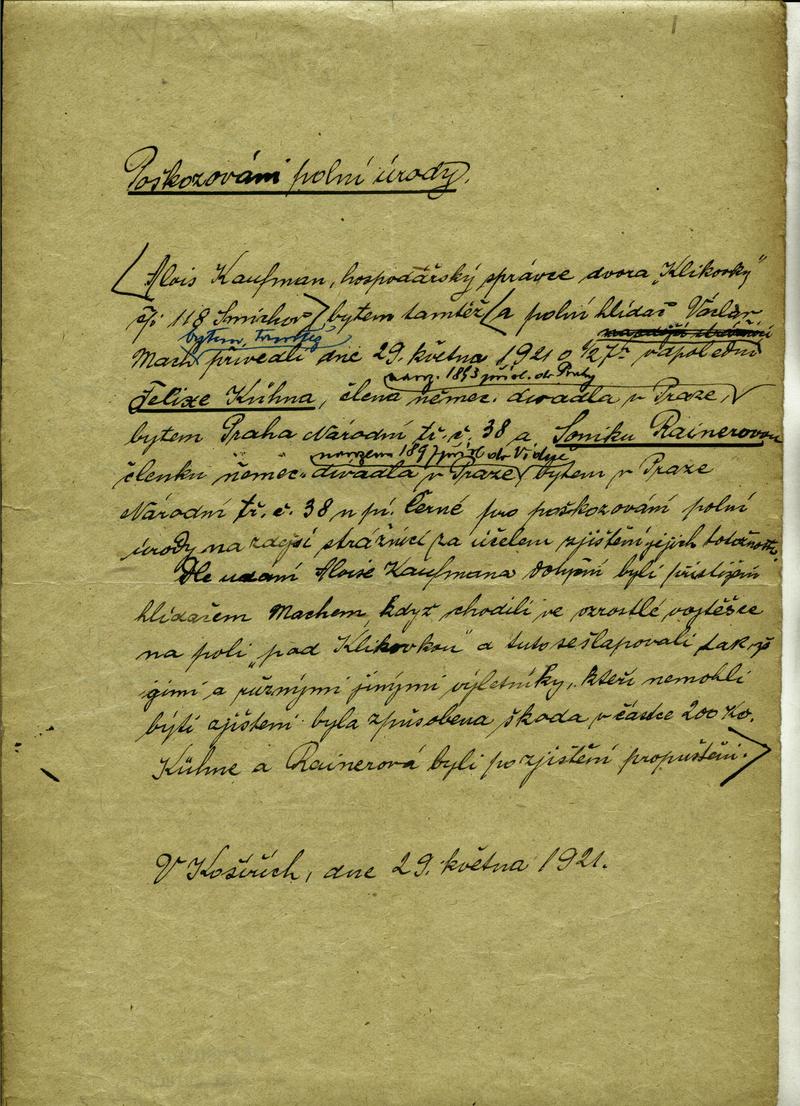 Poškozování polní úrody.
Alois Kaufman, hospodářský správce dvora „Klikovky"
čp. 118 Smíchov bytem tamtéž a polní hlídač Václav
bytem tamtéž na zdejší strážnici
Mach přivedli dne 29. května 1921 o ½7h odpolední
naroz. 1893 přísl. do Prahy
Felixe Kühna, člena němec. divadla v Praze,
bytem Praha Národní tř. č. 38 a Soniku Rainerovou
narozena 1897 přísl. do Vídně
členku němec. divadla v Praze, bytem v Praze
Národní tř. č. 38 u pí. Černé pro poškozování polní
úrody na zdejší strážnici za účelem zjištění jejich totožnosti.
Dle udání Aloise Kaufmana byli přistiženi
hlídačem Machem, když chodili ve vzrostlé vojtěšce
na poli „pod Klikovkou" a tuto sešlapovali tak, že
jimi a různými jinými výletníky, kteří nemohli
býti zjištěni byla způsobena škoda v částce 200 Kč.
Kühne a Rainerová byli po zjištění propuštěni.
V Košířích, dne 29. května 1921.